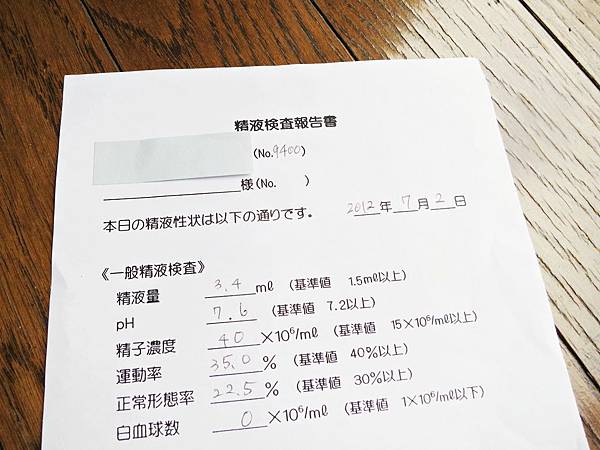 精液検査報告書
(No.9400)
様(No. )
本日の精液性状は以下の通りです。 2012年 7月 2日
《一般精液検査》
精液量 3.4 ml (基準値 1.5ml以上)
pH 7.6 (基準値 7.2以上)
精子濃度 40 ×10⁶/ml (基準値 15×10⁶/ml以上)
運動率 35.0 % (基準値 40%以上)
正常形態率 22.5 % (基準値 30%以上)
白血球数 0 ×10⁶/ml (基準値 1×10⁶/ml以下)